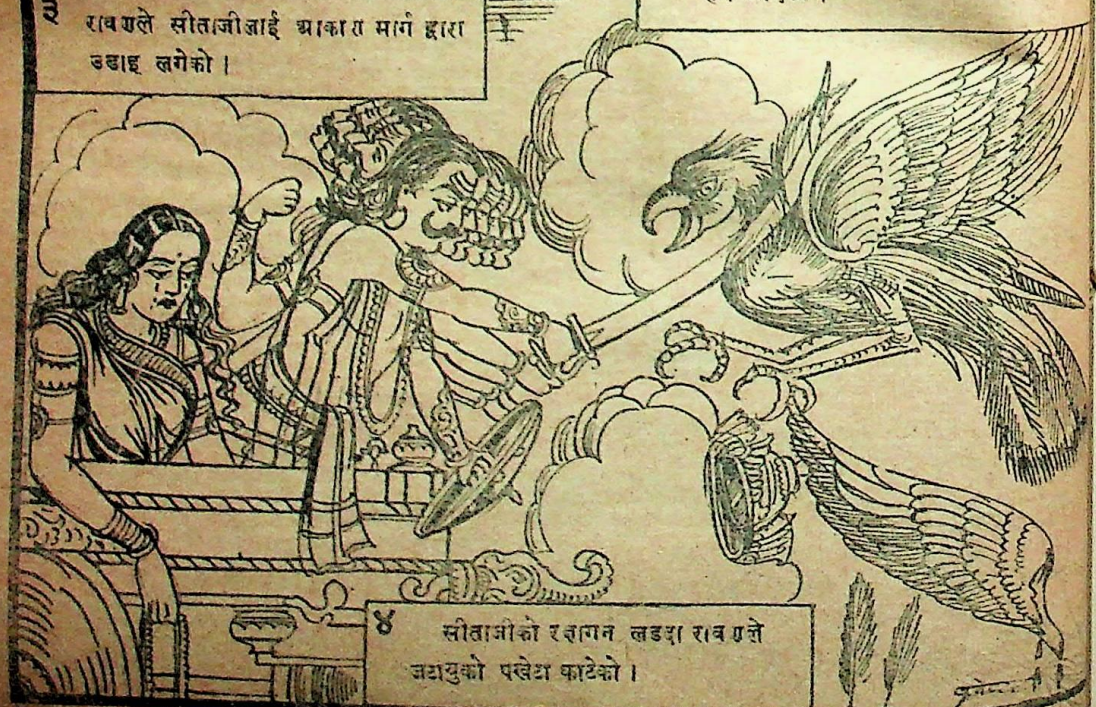 ३
रावणले सीताजीलाई आकाश मार्ग द्वारा
उडाइ लगेको ।
४
सीताजीको रक्षागर्न लडदा रावणले
जटायुको पखेटा काटेको ।